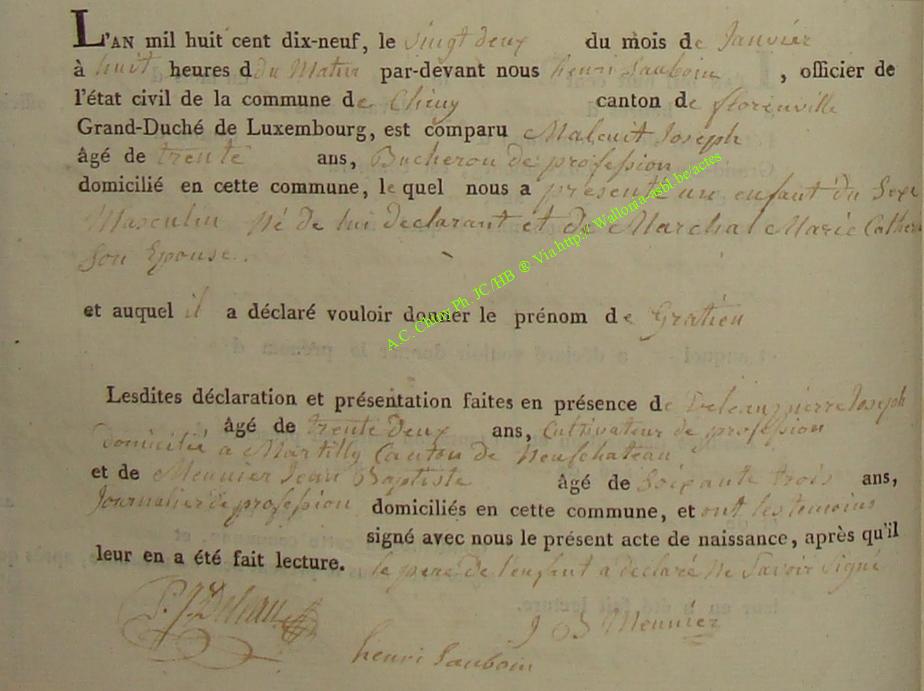 L'AN mil huit cent dix-neuf, le vingt deux du mois de Janvier
à huit heures d du Matin par-devant nous henri Sauboin, officier de
l'état civil de la commune de Chiny canton de florenville
Grand-Duché de Luxembourg, est comparu Maleuit Joseph
âgé de trente ans, Bucheron de profession
domicilié en cette commune, lequel nous a présenté un enfant du Sexe
Masculin Né de lui declarant et de Marchal Marie Cather
Son Epouse.
et auquel il a déclaré vouloir donner le prénom de Gratien
Lesdites déclaration et présentation faites en présence de Deleau pierre Joseph
âgé de trente Deux ans, Cultivateur de profession
domicilié a Martilly Canton de Neufchateau
et de Meunier Jean Baptiste âgé de Soixante trois ans,
Journalier de profession domiciliés en cette commune, et ont les temoins
signé avec nous le présent acte de naissance, après qu'il
leur en a été fait lecture. le pere de l'enfant a declaré Ne Savoir Signé
P. J. Deleau
J B Meunier
henri Sauboin
A.C. Chiny Ph. JC/HB ® Via http:\\Wallonia-asbl.be/actes